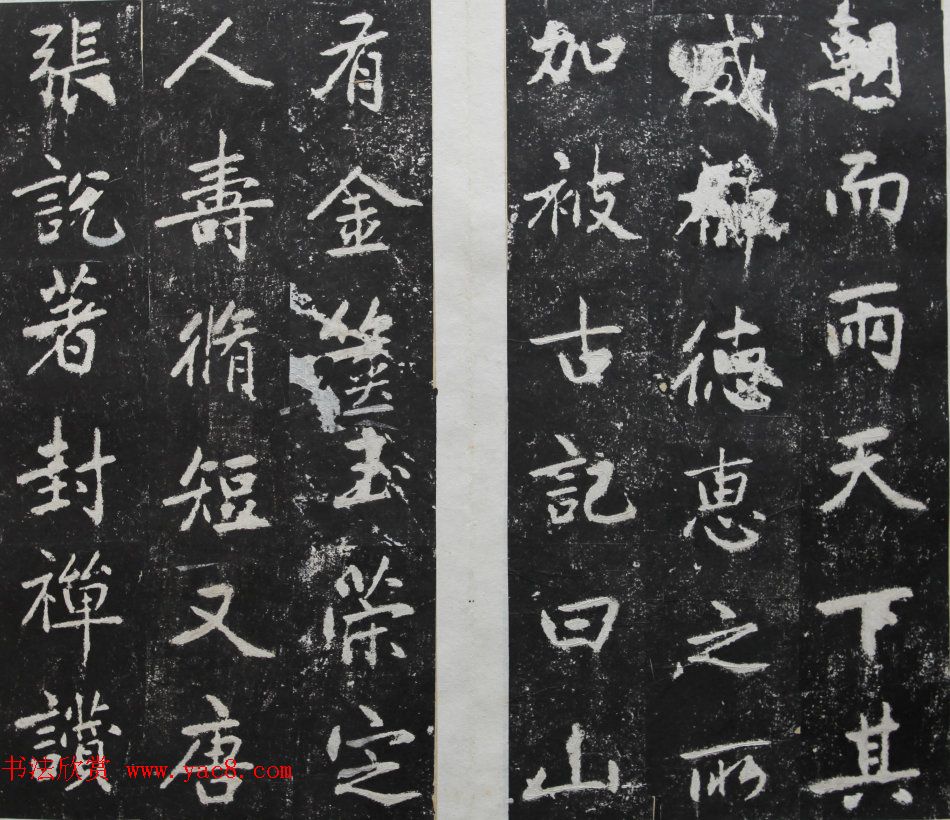 朝而雨天下其
威神德惠之所
加被古記曰山
有金篋玉策定
人壽脩短又唐
張說著封禪讚
书法欣赏 www.yac8.com